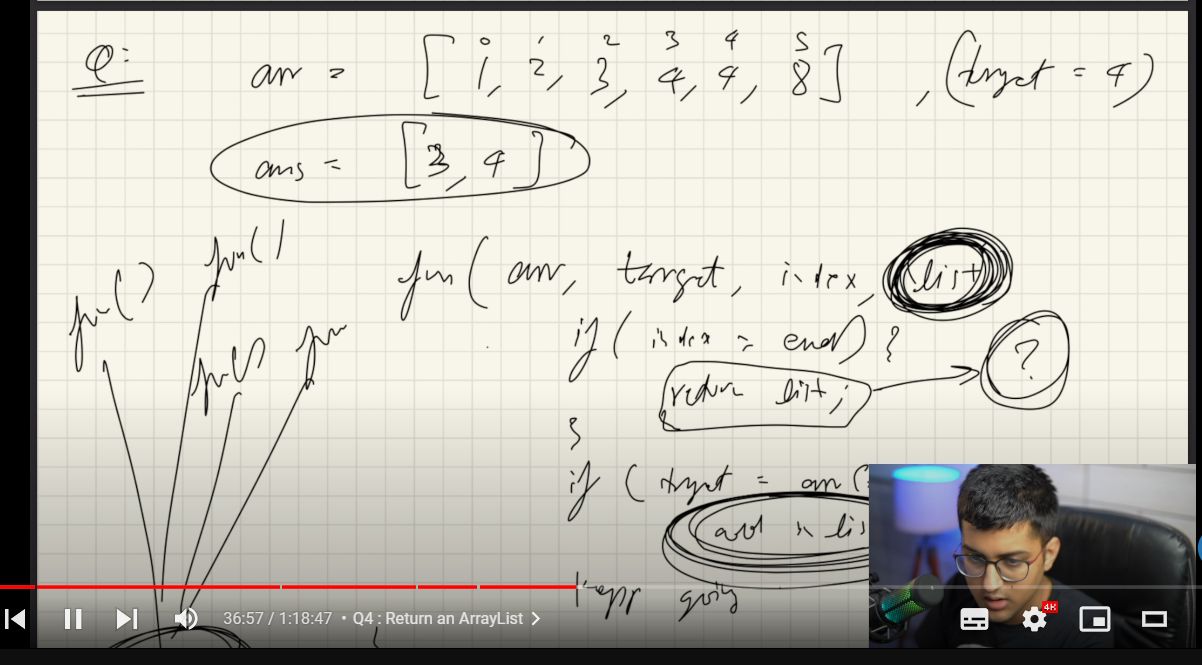 Q:
0 1 2 3 4 5
arr = [1, 2, 3, 4, 4, 8] , (target = 4)
ans = [3, 4]
fun()
fun()
fun()
fun
fun (arr, target, index, list
if (index = end) {
return list;
?
}
if (target = arr(
add in lis
keep going
36:57 / 1:18:47 • Q4 : Return an ArrayList >
4K